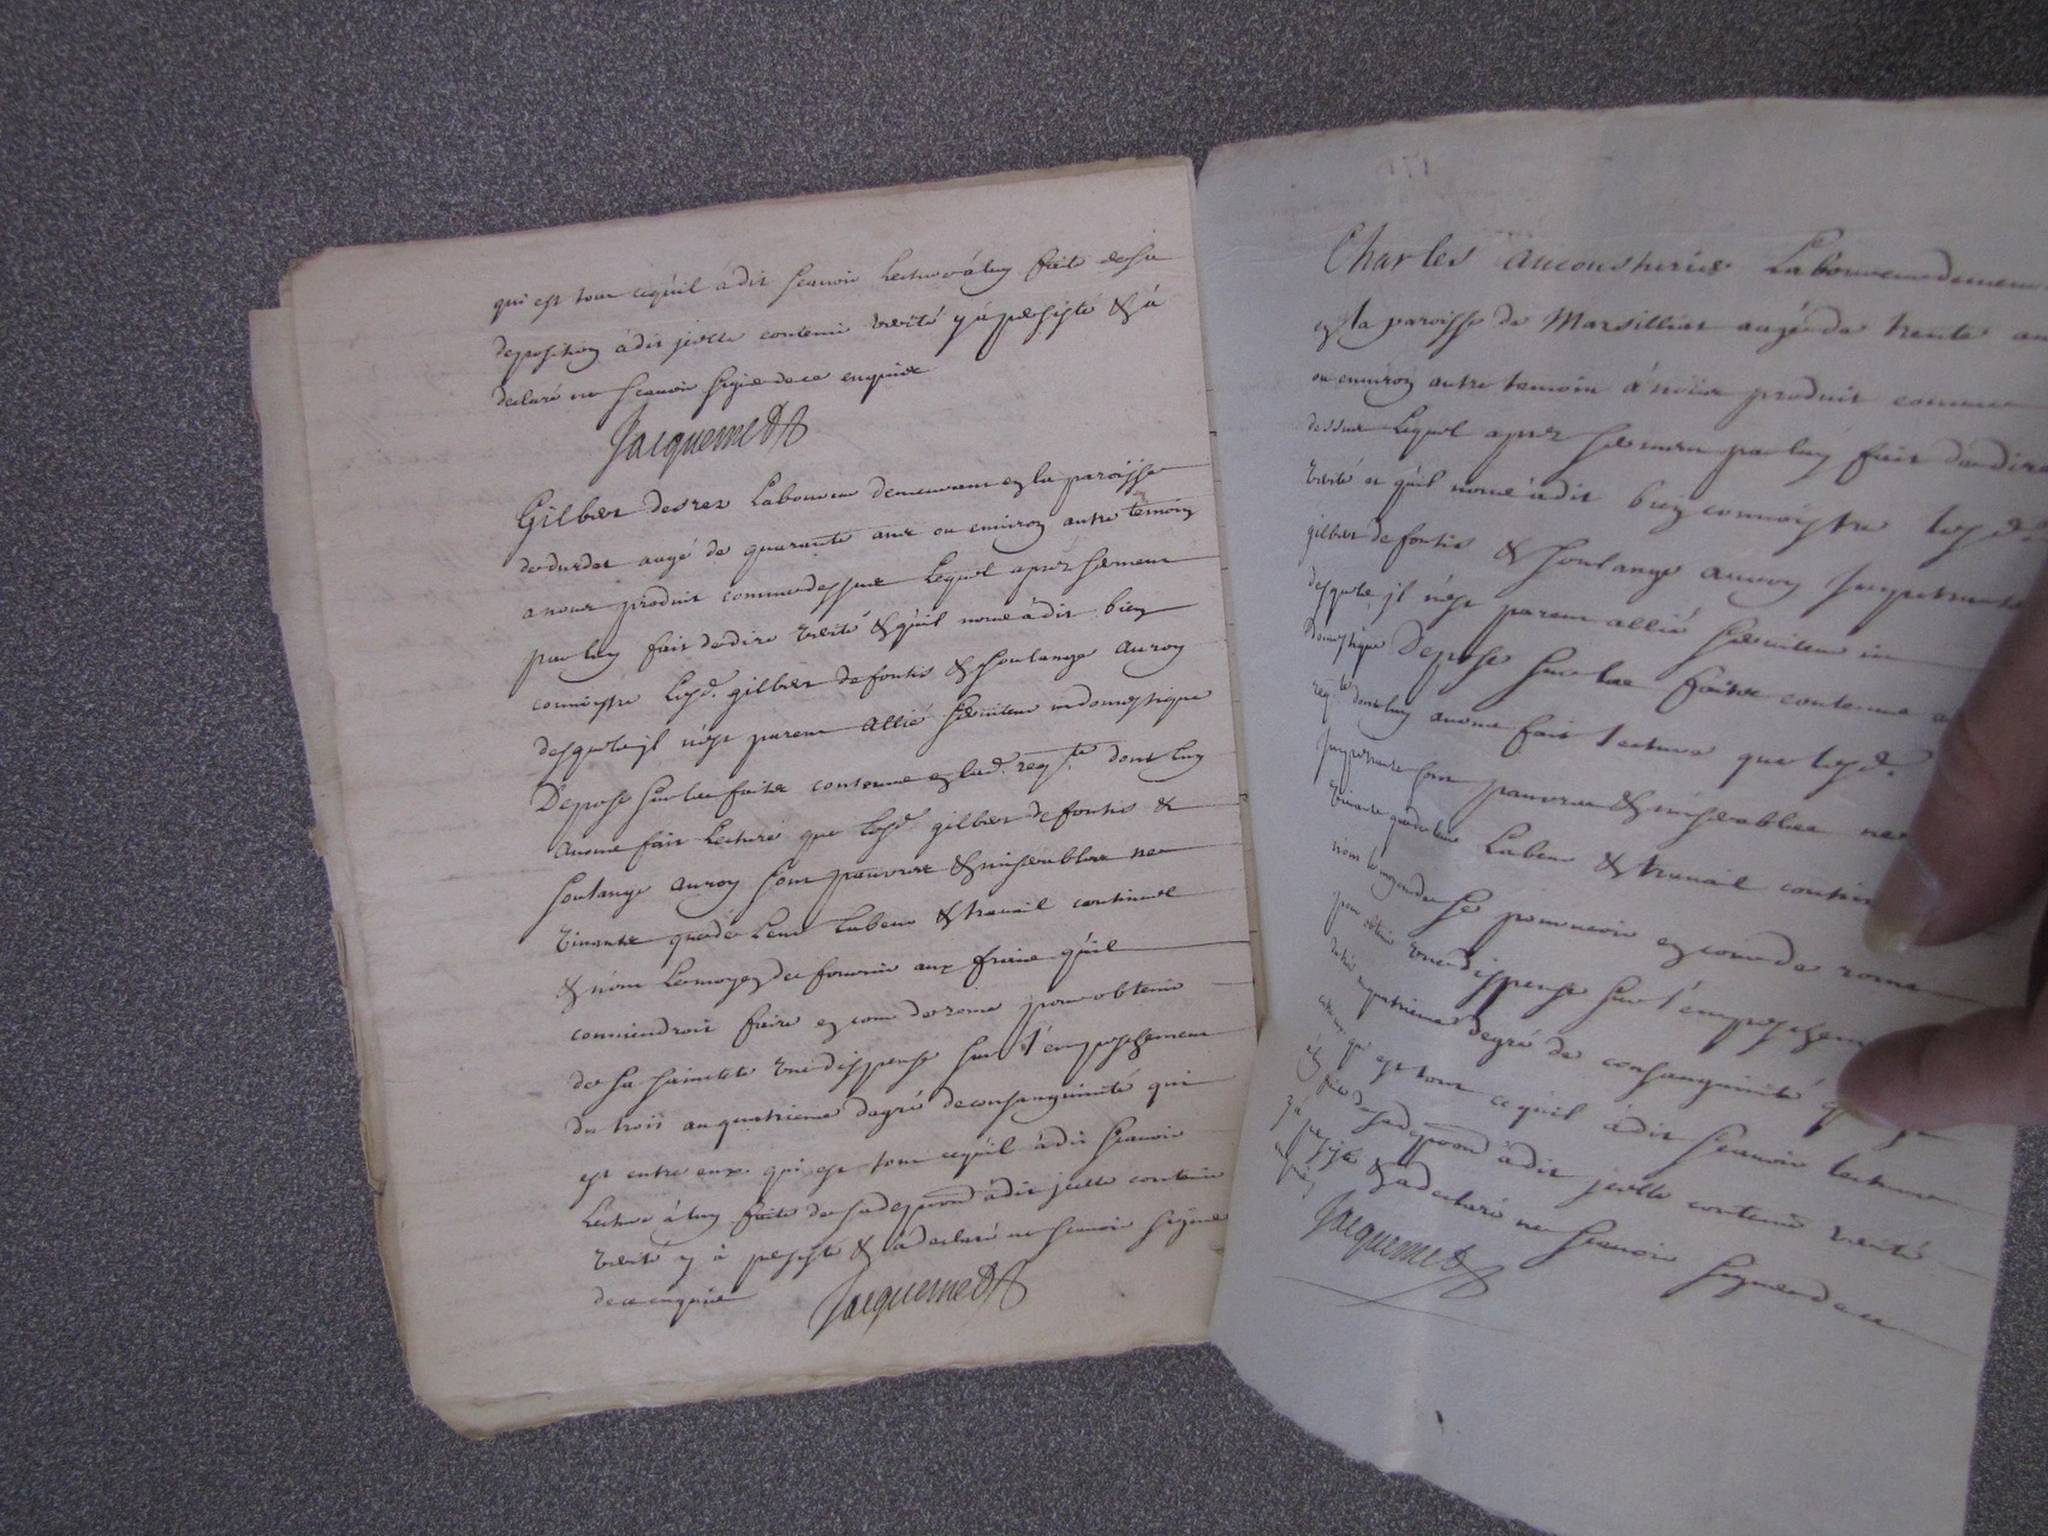 qui est tout ce qu'il à dit scavoir Lecture à luy faite de sa
deposition à dit jcelle contenir verité y à persisté & à
declaré ne scavoir signer de ce enquis
Jacquemet
Gilbert desrez Laboureur demeurant en la paroisse
de durdat aagé de quarante ans ou environ autre temoin
a nous produit comme dessus Lequel apres serment
par luy fait de dire verité & qu'il nous à dit bien
connoistre Lesd. gilbert defontis & soulange auroy
desquels jl n'est parent allié serviteur ny domestique
Depose sur les faits contenus en lad. reqte dont luy
avons fait Lecture que Lesd. gilbert defontis &
soulange auroy sont pauvres & miserables ne
vivants que de Leur Labeur & travail continuel
& n'ont Le moyen de fournir aux fraix qu'il
conviendroit faire en cour de rome pour obtenir
de sa sainteté une dispense sur l'empeschement
du trois au quatrieme degré de consanguinité qui
est entre eux qui est tout ce qu'il à dit scavoir
Lecture à luy faite de sa depoon à dit jcelle contenir
verité y à persisté & à declaré ne scavoir signer
de ce enquis Jacquemet
Charles Laboureur demeu
en la paroisse de Marsilliat aagé de trente an
ou environ autre temoin à nous produit comme
dessus Lequel apres serment par luy fait de dire
verité et qu'il nous à dit bien connoistre lesd.
gilbert defontis & soulange auroy Impetrants
desquels jl n'est parent allié serviteur ni
Domestique Depose sur les faits contenus
reqte dont luy avons fait Lecture que lesd.
Impetrants sont pauvres & miserables ne
vivants que de leur Labeur & travail contin
n'ont le moyen de se pourvoir en cour de rome
pour obtenir une dispense sur l'empeschem
du trois au quatrieme degré de consanguinité
entre eux qui est tout ce qu'il à dit scavoir lecture
à luy faite de sa depoon à dit jcelle contenir verité
y à persisté & a declaré ne scavoir signer de ce
enquis
Jacquemet